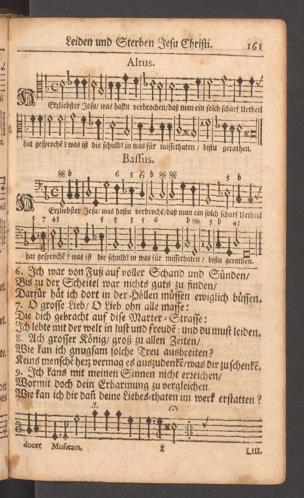 Leiden und Sterben Jesu Christi. 161
Altus.
Erzliebster Jesu/ was hastu verbrochen/ daß man ein solch scharf Urtheil
hat gesproche? was ist die schuld? in was für missethaten / bistu gerathen.
Bassus.
Erzliebster Jesu/ was hastu verbroche/ daß man ein solch scharf Urtheil
hat gesproche? was ist die schuld? in was für missethaten / bistu gerathen.
6. Ich war von Fuß auf voller Schand und Sünden/
Bis zu der Scheitel war nichts guts zu finden/
Dafür hät ich dort in der Höllen müssen ewiglich büssen.
7. O grosse Lieb/ O Lieb ohn alle masse:
Die dich gebracht auf dise Marter Strasse:
Ich lebte mit der welt in lust und freude: und du must leiden.
8. Ach grosser König/ groß zu allen Zeiten/
Wie kan ich gnugsam solche Treu ausbreiten?
Keins mensche herz vermag es auszudenke/ was dir zu schenke.
9. Ich kans mit meinen Sinnen nicht erreichen/
Wormit doch dein Erbarmung zu vergleichen.
Wie kan ich dir dan deine Liebes-thaten im werk erstatten?
docet Musicam. L LIII.